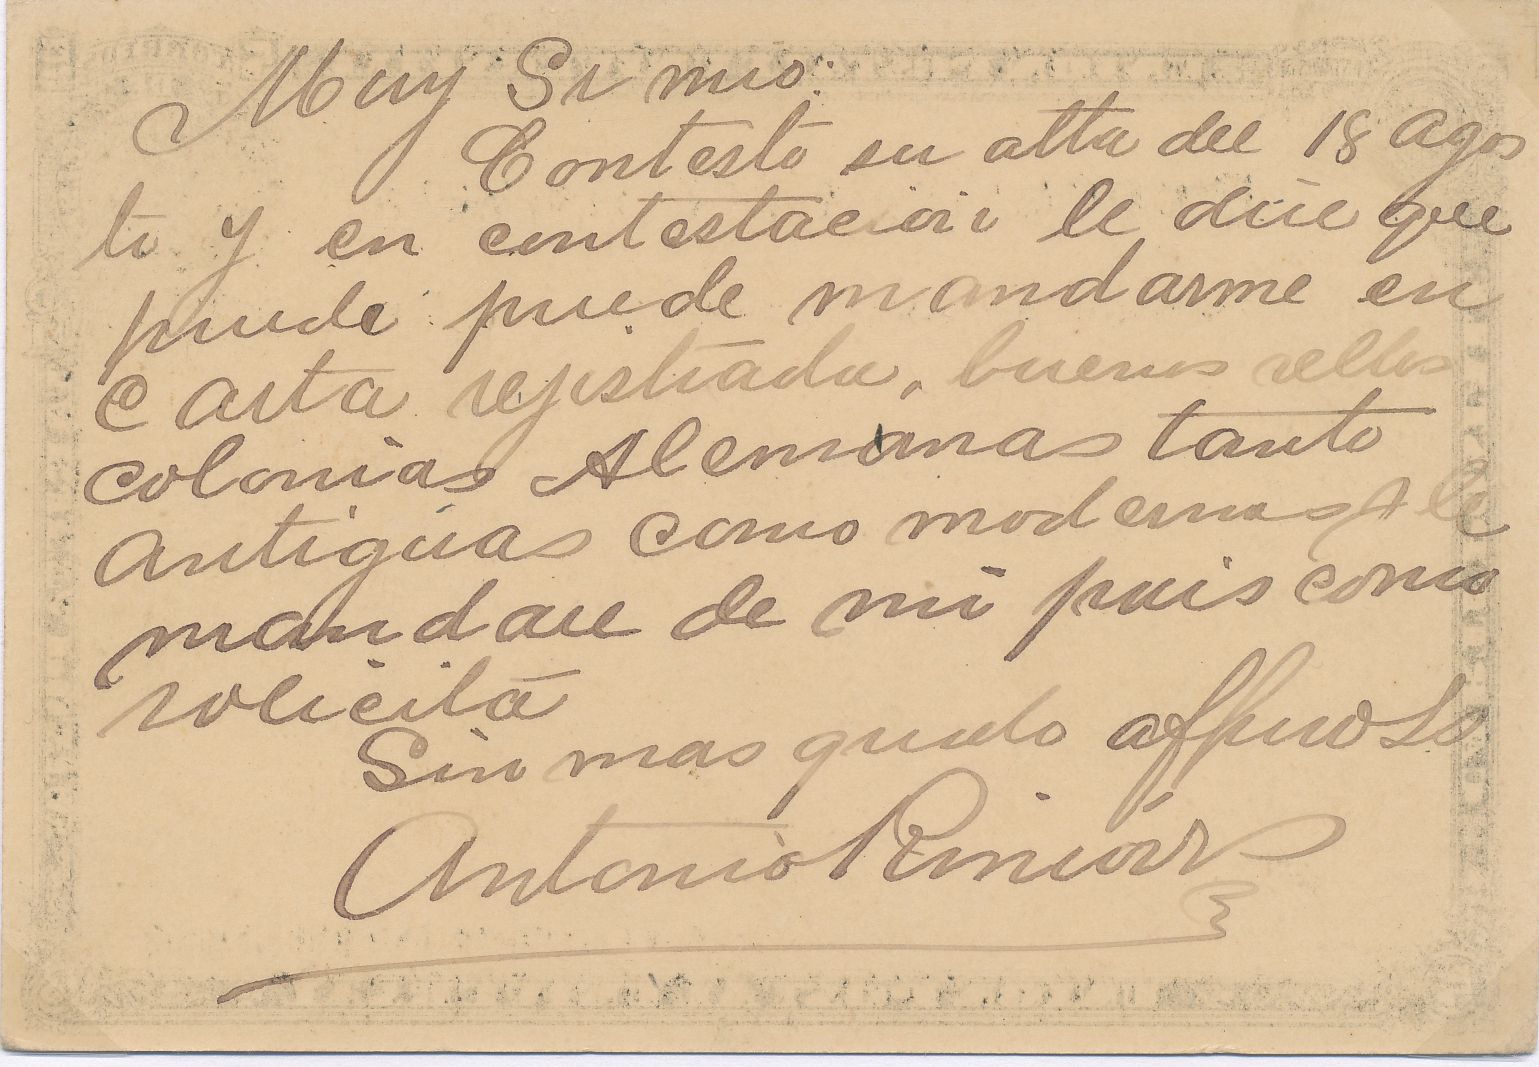 Muy Sr mio:
Contesto su atta del 18 Agos
to y en contestacion le dire que
puede puede mandarme en
carta rejistrada, buenos sellos
colonias Alemanas tanto
antiguas como modernas y le
mandare de mi pais como
solicita
Sin mas quedo affmo SS
Antonio